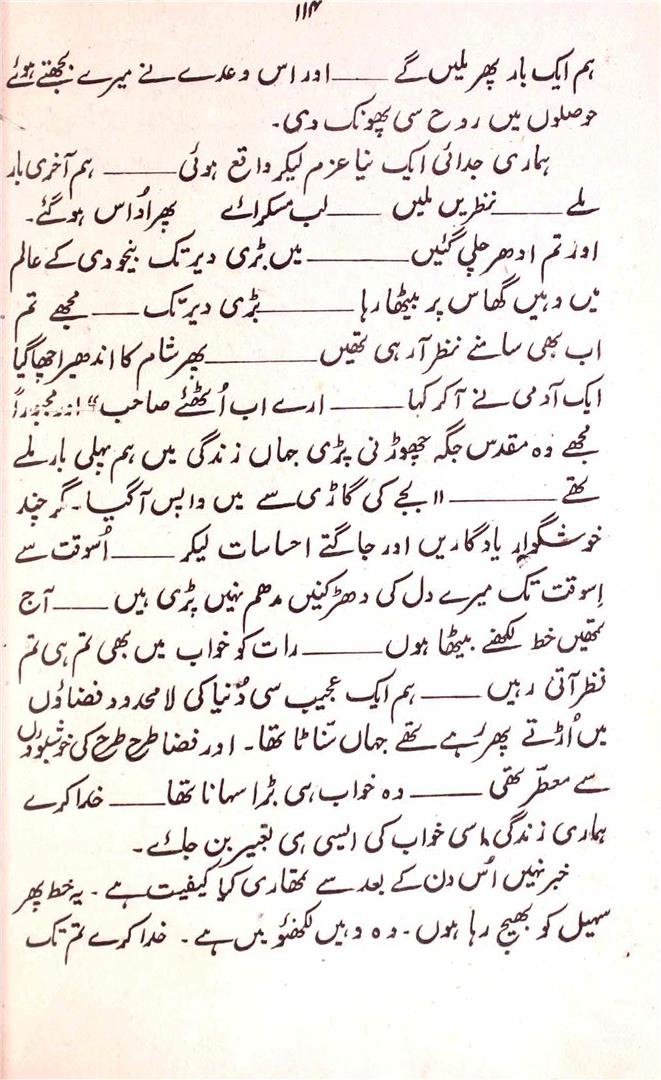 ۱۱۴
ہم ایک بار پھر ملیں گے ــــــ اور اس وعدے نے میرے بجھتے ہوئے
حوصلوں میں روح سی پھونک دی۔
ہماری جدائی ایک نیا عزم لیکر واقع ہوئی ــــــ ہم آخری بار
ملے ــــــ نظریں ملیں ــــــ لب مسکرائے پھر اُداس ہوگئے۔
اور تم ادھر چلی گئیں ــــــ میں بڑی دیر تک بیخودی کے عالم
میں وہیں گھاس پر بیٹھا رہا ــــــ بڑی دیر تک ــــــ مجھے تم
اب بھی سامنے نظر آرہی تھیں ــــــ پھر شام کا اندھیرا چھا گیا
ایک آدمی نے آکر کہا ــــــ ارے اب اُٹھئے صاحب“ اور مجبوراً
مجھے وہ مقدس جگہ چھوڑنی پڑی جہاں زندگی میں ہم پہلی بار ملے
تھے ــــــ ۱۱ بجے کی گاڑی سے میں واپس آگیا۔ گر چند
خوشگوار یادگاریں اور جاگتے احساسات لیکر ــــــ اُسوقت سے
اِسوقت تک میرے دل کی دھڑکنیں مدھم نہیں پڑی ہیں ــــــ آج
تمھیں خط لکھنے بیٹھا ہوں ــــــ رات کو خواب میں بھی تم ہی تم
نظر آتی رہیں ــــــ ہم ایک عجیب سی دُنیا کی لامحدود فضاؤں
میں اُڑتے پھر رہے تھے جہاں سنّاٹا تھا۔ اور فضا طرح طرح کی خوشبوؤں
سے معطّر تھی ــــــ وہ خواب ہی بڑا سہانا تھا ــــــ خدا کرے
ہماری زندگی اسی خواب کی ایسی ہی تعبیر بن جائے۔
خبر نہیں اُس دن کے بعد سے تمھاری کیا کیفیت ہے۔ یہ خط پھر
سہیل کو بھیج رہا ہوں۔ وہ وہیں لکھنؤ میں ہے۔ خدا کرے تم تک